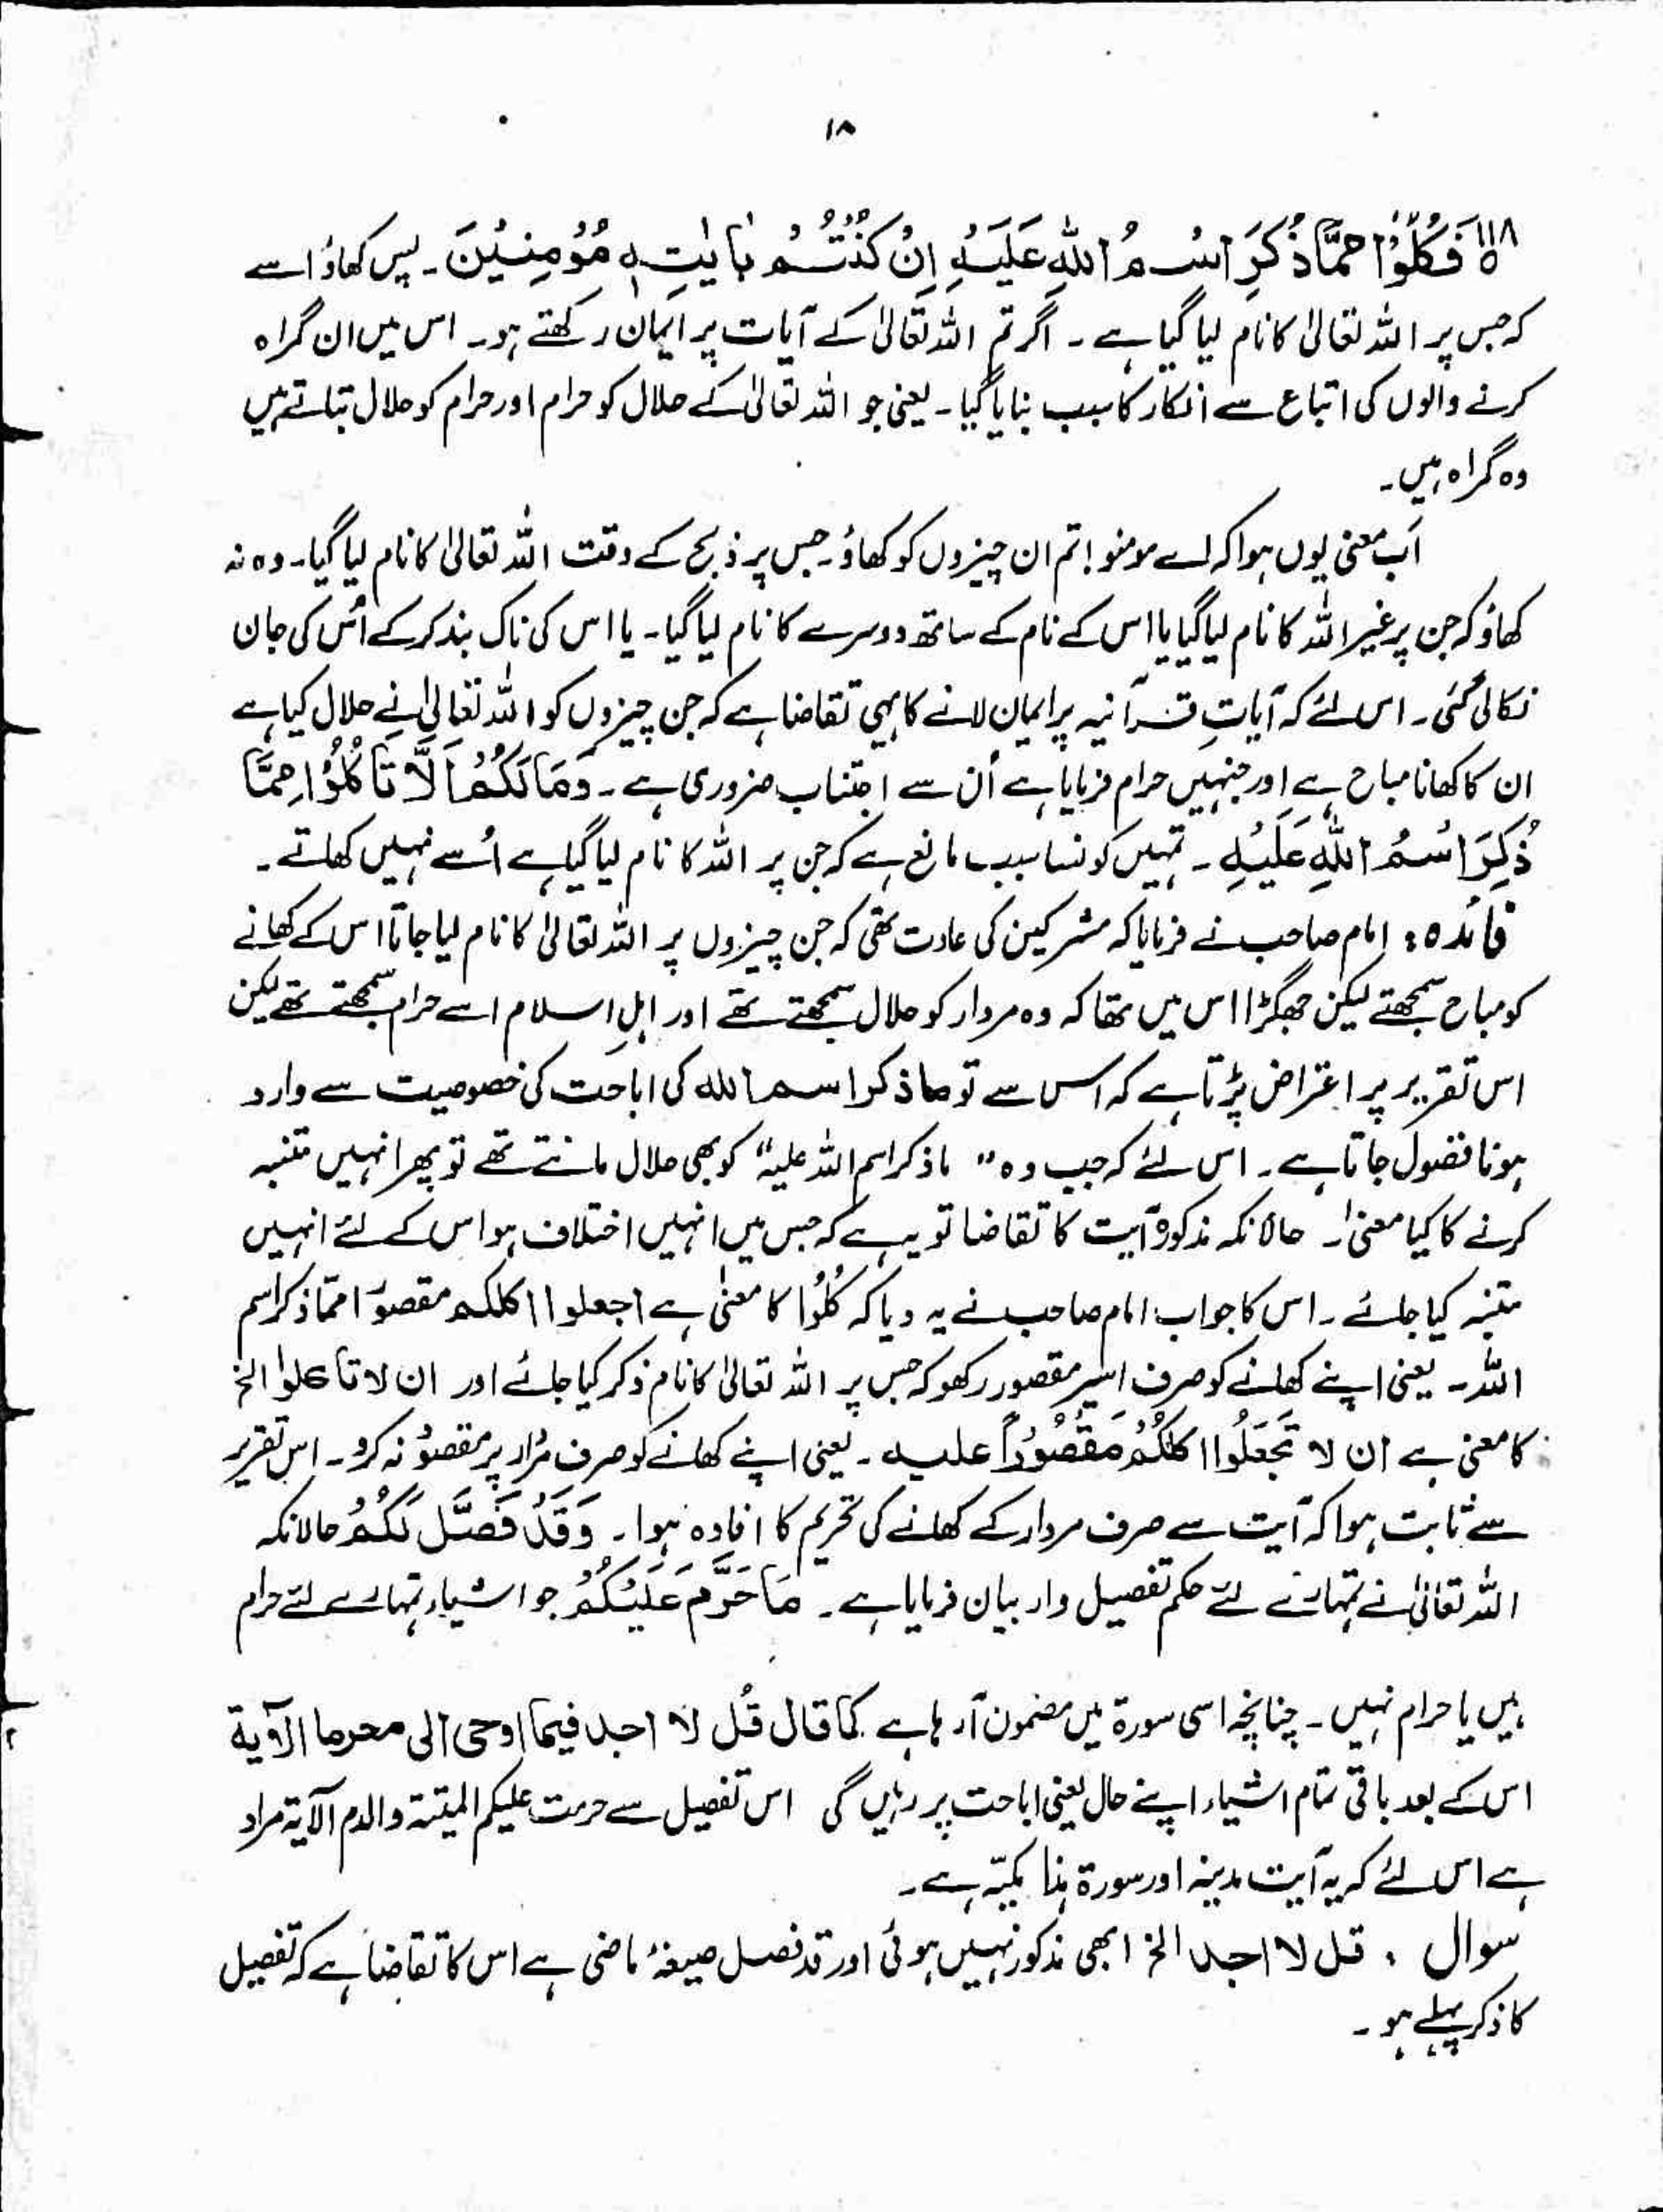 ۱۸
۱۱۸ فَكُلُوْا مِمَّا ذُكِرَ اسْمُ اللهِ عَلَيْهِ اِنْ كُنْتُمْ بِاٰيٰتِهٖ مُؤْمِنِيْنَ ۔ پس کھاؤ اسے
کہ جس پر اللہ تعالیٰ کا نام لیا گیا ہے ۔ اگر تم اللہ تعالیٰ کے آیات پر ایمان رکھتے ہو۔ اس میں ان گمراہ
کرنے والوں کی اتباع سے انکار کا سبب بنایا گیا ۔ یعنی جو اللہ تعالیٰ کے حلال کو حرام اور حرام کو حلال بتاتے ہیں
وہ گمراہ ہیں۔
اَب معنیٰ یوں ہوا کہ اے مومنو! تم ان چیزوں کو کھاؤ۔ جس پر ذبح کے وقت اللہ تعالیٰ کا نام لیا گیا۔ وہ نہ
کھاؤ کہ جن پر غیر اللہ کا نام لیا گیا یا اس کے نام کے ساتھ دوسرے کا نام لیا گیا۔ یا اس کی ناک بند کرکے اُس کی جان
نکالی گئی ۔ اس لئے کہ آیاتِ قرآنیہ پر ایمان لانے کا یہی تقاضا ہے کہ جن چیزوں کو اللہ تعالیٰ نے حلال کیا ہے
ان کا کھانا مباح ہے اور جنہیں حرام فرمایا ہے اُن سے اجتناب ضروری ہے ۔ وَمَا لَكُمْ اَلَّا تَاْكُلُوْا مِمَّا
ذُكِرَ اسْمُ اللهِ عَلَيْهِ ۔ تمہیں کونسا سبب مانع ہے کہ جن پر اللہ کا نام لیا گیا ہے اُسے نہیں کھاتے ۔
فائدہ : امام صاحب نے فرمایا کہ مشرکین کی عادت تھی کہ جن چیزوں پر اللہ تعالیٰ کا نام لیا جاتا اس کے کھانے
کو مباح سمجھتے لیکن جھگڑا اس میں تھا کہ وہ مردار کو حلال سمجھتے تھے اور اہلِ اسلام اسے حرام سمجھتے تھے لیکن
اس تقریر پر اعتراض پڑتا ہے کہ اس سے تو ما ذکر اسم اللہ کی اباحت کی خصوصیت سے وارد
ہونا فضول جاتا ہے ۔ اس لئے کہ جب وہ " ما ذکر اسم اللہ علیہ" کو بھی حلال مانتے تھے تو پھر انہیں متنبہ
کرنے کا کیا معنیٰ ۔ حالانکہ مذکورہ آیت کا تقاضا تو یہ ہے کہ جس میں انہیں اختلاف ہو اس کے لئے انہیں
متنبہ کیا جائے ۔ اس کا جواب امام صاحب نے یہ دیا کہ کُلُوْا کا معنیٰ ہے اجعلوا اکلکم مقصورًا ممّا ذکر اسم
اللہ ۔ یعنی اپنے کھانے کو صرف اسپر مقصور رکھو کہ جس پر اللہ تعالیٰ کا نام ذکر کیا جائے اور ان لا تاکلوا الخ
کا معنیٰ ہے ان لا تَجْعَلُوا اکلَکُمْ مَقْصُوْرًا علیہ ۔ یعنی اپنے کھانے کو صرف مُردار پر مقصور نہ کرو ۔ اس تقریر
سے ثابت ہوا کہ آیت سے صرف مردار کے کھانے کی تحریم کا افادہ ہوا ۔ وَقَدْ فَصَّلَ لَكُمْ حالانکہ
اللہ تعالیٰ نے تمہارے لئے حکم تفصیل وار بیان فرمایا ہے ۔ مَا حَرَّمَ عَلَيْكُمْ جو اشیاء تمہارے لئے حرام
ہیں یا حرام نہیں ۔ چنانچہ اسی سورۃ میں مضمون آرہا ہے کما قال قُل لا اجد فیما اوحی الی محرما الآیۃ
اس کے بعد باقی تمام اشیاء اپنے حال یعنی اباحت پر رہیں گی اس تفصیل سے حرمت علیکم المیتۃ والدم الآیۃ مراد
ہے اس لئے کہ یہ آیت مدینہ اور سورۃ ہٰذا مکیّہ ہے ۔
سوال : قل لا اجد الخ ابھی مذکور نہیں ہوئی اور قد فصل صیغۂ ماضی ہے اس کا تقاضا ہے کہ تفصیل
کا ذکر پہلے ہو ۔